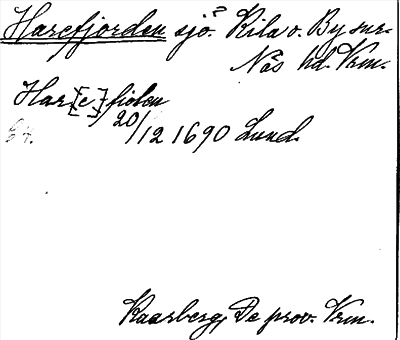 Harefjorden sjö? Kila o. By snr.
Näs hd. Vrm.
Har[e]fiolen
20/12 1690 Lund.
Kaarberg, De prov. Vrm.